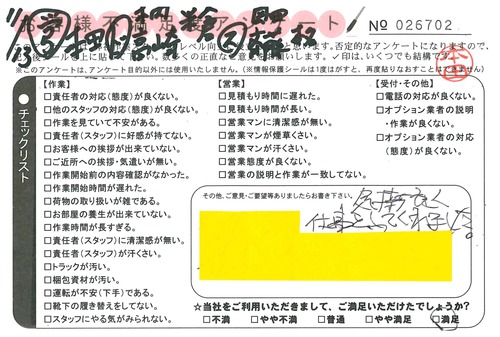 お客様不満足度アンケート
№ 026702
このアンケートは、
レベル向上
思います。否定的なアンケートになりますので、
数多くの正直なご意見をお願いします。✓印は、いくつでも結構です。
※このアンケートは、アンケート目的以外には使用いたしません。(※情報保護シールは1度はがすと、再度貼りなおすことはできません)
チェックリスト
【作業】
□責任者の対応(態度)が良くない。
□他のスタッフの対応(態度)が良くない。
□作業を見ていて不安がある。
□責任者(スタッフ)に好感が持てない。
□お客様への挨拶が出来ていない。
□ご近所への挨拶・気遣いが無い。
□作業開始前の内容確認がなかった。
□作業開始時間が遅れた。
□荷物の取り扱いが雑である。
□お部屋の養生が出来ていない。
□作業時間が長すぎる。
□責任者(スタッフ)に清潔感が無い。
□責任者(スタッフ)が汗くさい。
□トラックが汚い。
□梱包資材が汚い。
□運転が不安(下手)である。
□靴下の履き替えをしてない。
□スタッフにやる気がみられない。
【営業】
□見積もり時間に遅れた。
□見積もり時間が長い。
□営業マンに清潔感が無い。
□営業マンが煙草くさい。
□営業マンが汗くさい。
□営業態度が良くない。
□営業の説明と作業が一致してない。
【受付・その他】
□電話の対応が良くない。
□オプション業者の説明
・作業が良くない。
□オプション業者の対応
(態度)が良くない。
その他、ご意見・ご要望等ありましたらお書き下さい。
気持よく
仕事をしてくれました。
☆当社をご利用いただきまして、ご満足いただけたでしょうか?
□不満 □やや不満 □普通 □やや満足 □満足